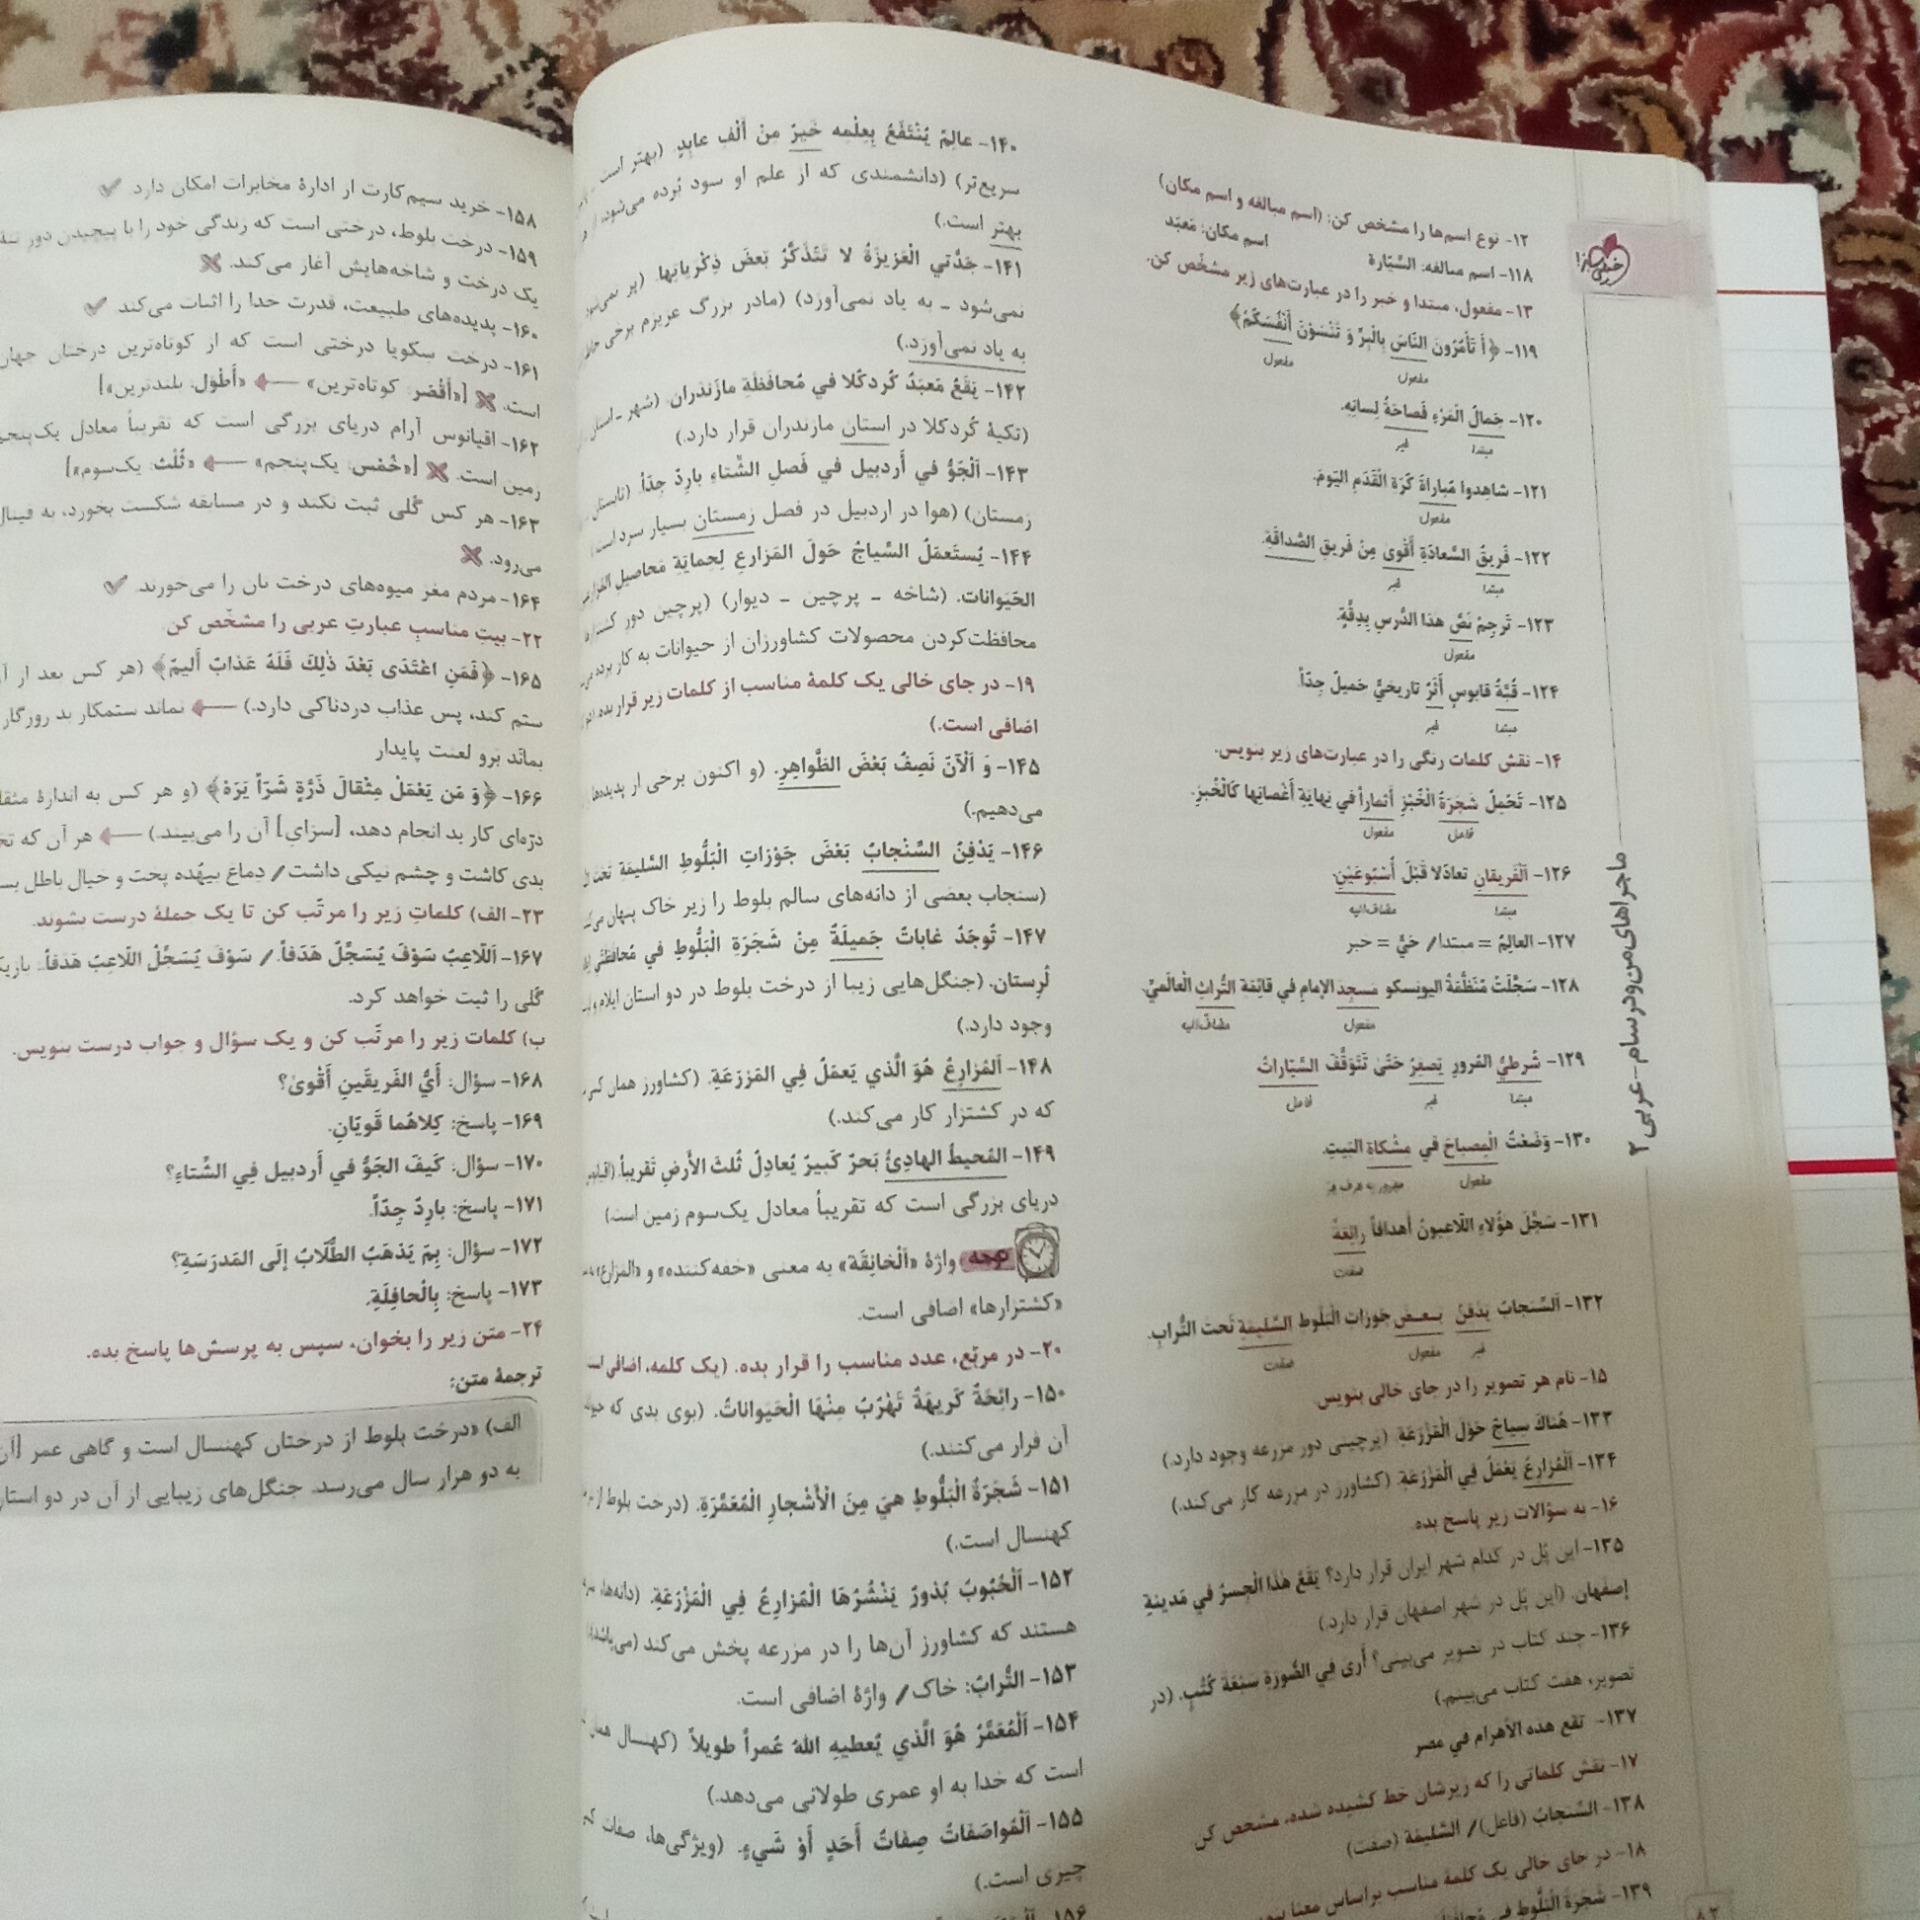 خیلی سبز!
ماجراهای من و درسام - عربی ۲
۱۲- نوع اسم‌ها را مشخص کن: (اسم مبالغه و اسم مکان)
۱۱۸- اسم مبالغه: السَّیّارة اسم مکان: مَعبَد
۱۳- مفعول، مبتدا و خبر را در عبارت‌های زیر مشخّص کن.
۱۱۹- ﴿أَ تَأْمُرُونَ النّاسَ بِالْبِرِّ وَ تَنْسَوْنَ أَنْفُسَكُمْ﴾
مفعول مفعول
۱۲۰- جَمالُ الْمَرْءِ فَصاحَةُ لِسانِهِ.
مبتدا خبر
۱۲۱- شاهِدوا مُباراةَ كُرَةِ الْقَدَمِ الیَومَ.
مفعول
۱۲۲- فَریقُ السَّعادَةِ أَقْویٰ مِنْ فَریقِ الصَّداقَةِ.
مبتدا خبر
۱۲۳- تَرجِمْ نَصَّ هذَا الدَّرسِ بِدِقَّةٍ.
مفعول
۱۲۴- قُبَّةُ قابوسٍ أَثَرٌ تاریخيٌّ جَمیلٌ جِدّاً.
مبتدا خبر
۱۴- نقش کلمات رنگی را در عبارت‌های زیر بنویس.
۱۲۵- تَحْمِلُ شَجَرَةُ الْخُبْزِ أَثماراً في نِهایَةِ أَغْصانِها كَالْخُبزِ.
فاعل مفعول
۱۲۶- اَلْفَریقانِ تَعادَلا قَبْلَ أُسْبُوعَیْنِ.
مبتدا مضاف‌الیه
۱۲۷- العالِمُ = مبتدا/ حَيٌّ = خبر
۱۲۸- سَجَّلَتْ مُنَظَّمَةُ الیونسکو مَسجِدَ الإمامِ في قائِمَةِ التُّراثِ الْعالَميِّ.
مفعول مضاف‌الیه
۱۲۹- شُرطيُّ المُرورِ یَصفِرُ حَتّیٰ تَتَوَقَّفَ السَّیّاراتُ
مبتدا خبر فاعل
۱۳۰- وَضَعْتُ الْمِصباحَ في مِشْكاةِ البَیتِ.
مفعول مجرور به حرف جر
۱۳۱- سَجَّلَ هؤُلاءِ اللّاعبونَ أهدافاً رائِعَةً
صفت
۱۳۲- اَلسِّنجابُ یَدْفِنُ بَعضَ جَوزاتِ الْبَلّوطِ السَّلیمَةِ تَحتَ التُّرابِ.
خبر مفعول صفت
۱۵- نام هر تصویر را در جای خالی بنویس.
۱۳۳- هُناكَ سِیاجٌ حَوْلَ الْمَزْرَعَةِ. (پرچینی دور مزرعه وجود دارد.)
۱۳۴- اَلْمُزارِعُ یَعْمَلُ فِي الْمَزْرَعَةِ. (کشاورز در مزرعه کار می‌کند.)
۱۶- به سؤالات زیر پاسخ بده.
۱۳۵- این پُل در کدام شهر ایران قرار دارد؟ یَقَعُ هٰذَا الْجِسرُ في مَدینَةِ
إصفهان. (این پُل در شهر اصفهان قرار دارد.)
۱۳۶- چند کتاب در تصویر می‌بینی؟ أَریٰ فِي الصّورَةِ سَبْعَةَ كُتُبٍ. (در
تصویر، هفت کتاب می‌بینم.)
۱۳۷- تَقَع هذه الأهرام في مصر
۱۷- نقش کلماتی را که زیرشان خط کشیده شده، مشخص کن
۱۳۸- السِّنجابُ (فاعل)/ السَّلیمَة (صفت)
۱۸- در جای خالی یک کلمهٔ مناسب براساس معنا
۱۳۹- شَجَرَةُ البَلّوطِ في
۸۲
۱۴۰- عالِمٌ یُنْتَفَعُ بِعِلْمِهِ خَیرٌ مِنْ أَلْفِ عابِدٍ. (بهتر است -
سریع‌تر) (دانشمندی که از علم او سود بُرده می‌شود، از
بهتر است.)
۱۴۱- جَدَّتي الْعَزیزَةُ لا تَتَذَكَّرُ بَعضَ ذِكْرَیاتِها. (پر نمی‌شود
نمی‌شود - به یاد نمی‌آورَد) (مادر بزرگ عزیزم برخی
به یاد نمی‌آورَد.)
۱۴۲- یَقَعُ مَعبَدُ كُردكُلا في مُحافَظَةِ مازَندَران. (شهر - استان
(تکیهٔ کُردکلا در استان مازندران قرار دارد.)
۱۴۳- اَلْجَوُّ في أَردبیل في فَصلِ الشِّتاءِ بارِدٌ جِدّاً. (تابستان -
زمستان) (هوا در اردبیل در فصل زمستان بسیار سرد است.)
۱۴۴- یُستَعمَلُ السِّیاجُ حَولَ المَزارِعِ لِحِمایَةِ مَحاصیلِ
الحَیَوانات. (شاخه - پرچین - دیوار) (پرچین دور
محافظت‌کردن محصولات کشاورزان از حیوانات به کار برده
۱۹- در جای خالی یک کلمهٔ مناسب از کلمات زیر قرار بده.
اضافی است.)
۱۴۵- وَ الْآنَ نَصِفُ بَعْضَ الظَّواهِرِ. (و اکنون برخی از پدیده‌ها
می‌دهیم.)
۱۴۶- یَدْفِنُ السِّنْجابُ بَعْضَ جَوْزاتِ الْبَلُّوطِ السَّلیمَةِ تَحْتَ
(سنجاب بعضی از دانه‌های سالم بلوط را زیر خاک پنهان
۱۴۷- تُوجَدُ غاباتٌ جَمیلَةٌ مِنْ شَجَرَةِ الْبَلُّوطِ في مُحافَظَتَي
لُرِستان. (جنگل‌هایی زیبا از درخت بلوط در دو استان ایلام و
وجود دارد.)
۱۴۸- اَلمُزارِعُ هُوَ الَّذي یَعمَلُ فِي المَزرَعَةِ. (کشاورز همان
که در کشتزار کار می‌کند.)
۱۴۹- المُحیطُ الهادِئُ بَحرٌ كَبیرٌ یُعادِلُ ثُلثَ الأَرضِ تَقریباً.
دریای بزرگی است که تقریباً معادل یک‌سوم زمین است)
توجه واژهٔ «اَلْخانِقَة» به معنی «خفه‌کننده» و «المَزارِع»
«کشتزارها» اضافی است.
۲۰- در مربّع، عدد مناسب را قرار بده. (یک کلمه، اضافی است
۱۵۰- رائِحَةٌ كَریهَةٌ تَهْرُبُ مِنْهَا الْحَیَواناتُ. (بوی بدی که
آن فرار می‌کنند.)
۱۵۱- شَجَرَةُ الْبَلُّوطِ هِيَ مِنَ الْأَشْجارِ الْمُعَمَّرَةِ. (درخت بلوط
کهنسال است.)
۱۵۲- اَلْحُبُوبُ بُذورٌ یَنْشُرُهَا الْمُزارِعُ فِي الْمَزْرَعَةِ. (دانه‌ها،
هستند که کشاورز آن‌ها را در مزرعه پخش می‌کند
۱۵۳- التُّرابُ: خاک/ واژهٔ اضافی است.
۱۵۴- اَلْمُعَمَّرُ هُوَ الَّذي یُعطیهِ اللهُ عُمراً طویلاً. (کهنسال
است که خدا به او عمری طولانی می‌دهد.)
۱۵۵- اَلْمُواصَفاتُ صِفاتُ أَحَدٍ أَوْ شَيءٍ. (ویژگی‌ها، صفات
چیزی است.)
۱۵۶-
۱۵۸- خرید سیم‌کارت از ادارهٔ مخابرات امکان دارد.
۱۵۹- درخت بلوط، درختی است که زندگی خود را با پیچیدن دور
یک درخت و شاخه‌هایش آغاز می‌کند.
۱۶۰- پدیده‌های طبیعت، قدرت خدا را اثبات می‌کند
۱۶۱- درخت سکویا درختی است که از کوتاه‌ترین درختان جهان
است. [«أَقْصَر: کوتاه‌ترین» ← «أَطْوَل: بلندترین»]
۱۶۲- اقیانوس آرام دریای بزرگی است که تقریباً معادل
زمین است. [«خُمْس: یک‌پنجم» ← «ثُلْث: یک‌سوم»]
۱۶۳- هر کس گُلی ثبت نکند و در مسابقه شکست بخورد، به فینال
می‌رود.
۱۶۴- مردم مغز میوه‌های درخت نان را می‌خورند.
۲۲- بیتِ مناسبِ عبارتِ عربی را مشخّص کن.
۱۶۵- ﴿فَمَنِ اعْتَدَى بَعْدَ ذٰلِكَ فَلَهُ عَذابٌ أَلیمٌ﴾ (هر کس بعد از
ستم کند، پس عذاب دردناکی دارد.) ← نماند ستمکار بد روزگار
بمانَد برو لعنت پایدار
۱۶۶- ﴿وَ مَن یَعْمَلْ مِثْقالَ ذَرَّةٍ شَرّاً یَرَهُ﴾ (و هر کس به اندازهٔ
ذرّه‌ای کار بد انجام دهد، [سزای] آن را می‌بیند.) ← هر آن که
بدی کاشت و چشم نیکی داشت/ دِماغ بیهُده پخت و خیال باطل
۲۳- الف) کلماتِ زیر را مرتّب کن تا یک جملهٔ درست بشوند.
۱۶۷- اَللّاعِبُ سَوْفَ یُسَجِّلُ هَدَفاً. / سَوْفَ یُسَجِّلُ اللّاعِبُ هَدَفاً.
گُلی را ثبت خواهد کرد.
ب) کلمات زیر را مرتّب کن و یک سؤال و جواب درست بنویس.
۱۶۸- سؤال: أَيُّ الفَریقَینِ أَقْویٰ؟
۱۶۹- پاسخ: كِلاهُما قَویّانِ.
۱۷۰- سؤال: كَیفَ الجَوُّ في أَردبیل فِي الشِّتاءِ؟
۱۷۱- پاسخ: بارِدٌ جِدّاً.
۱۷۲- سؤال: بِمَ یَذهَبُ الطُّلّابُ إلَی المَدرَسَةِ؟
۱۷۳- پاسخ: بِالْحافِلَةِ.
۲۴- متن زیر را بخوان، سپس به پرسش‌ها پاسخ بده.
ترجمهٔ متن:
الف) «درخت بلوط از درختان کهنسال است و گاهی عمر
به دو هزار سال می‌رسد. جنگل‌های زیبایی از آن در دو